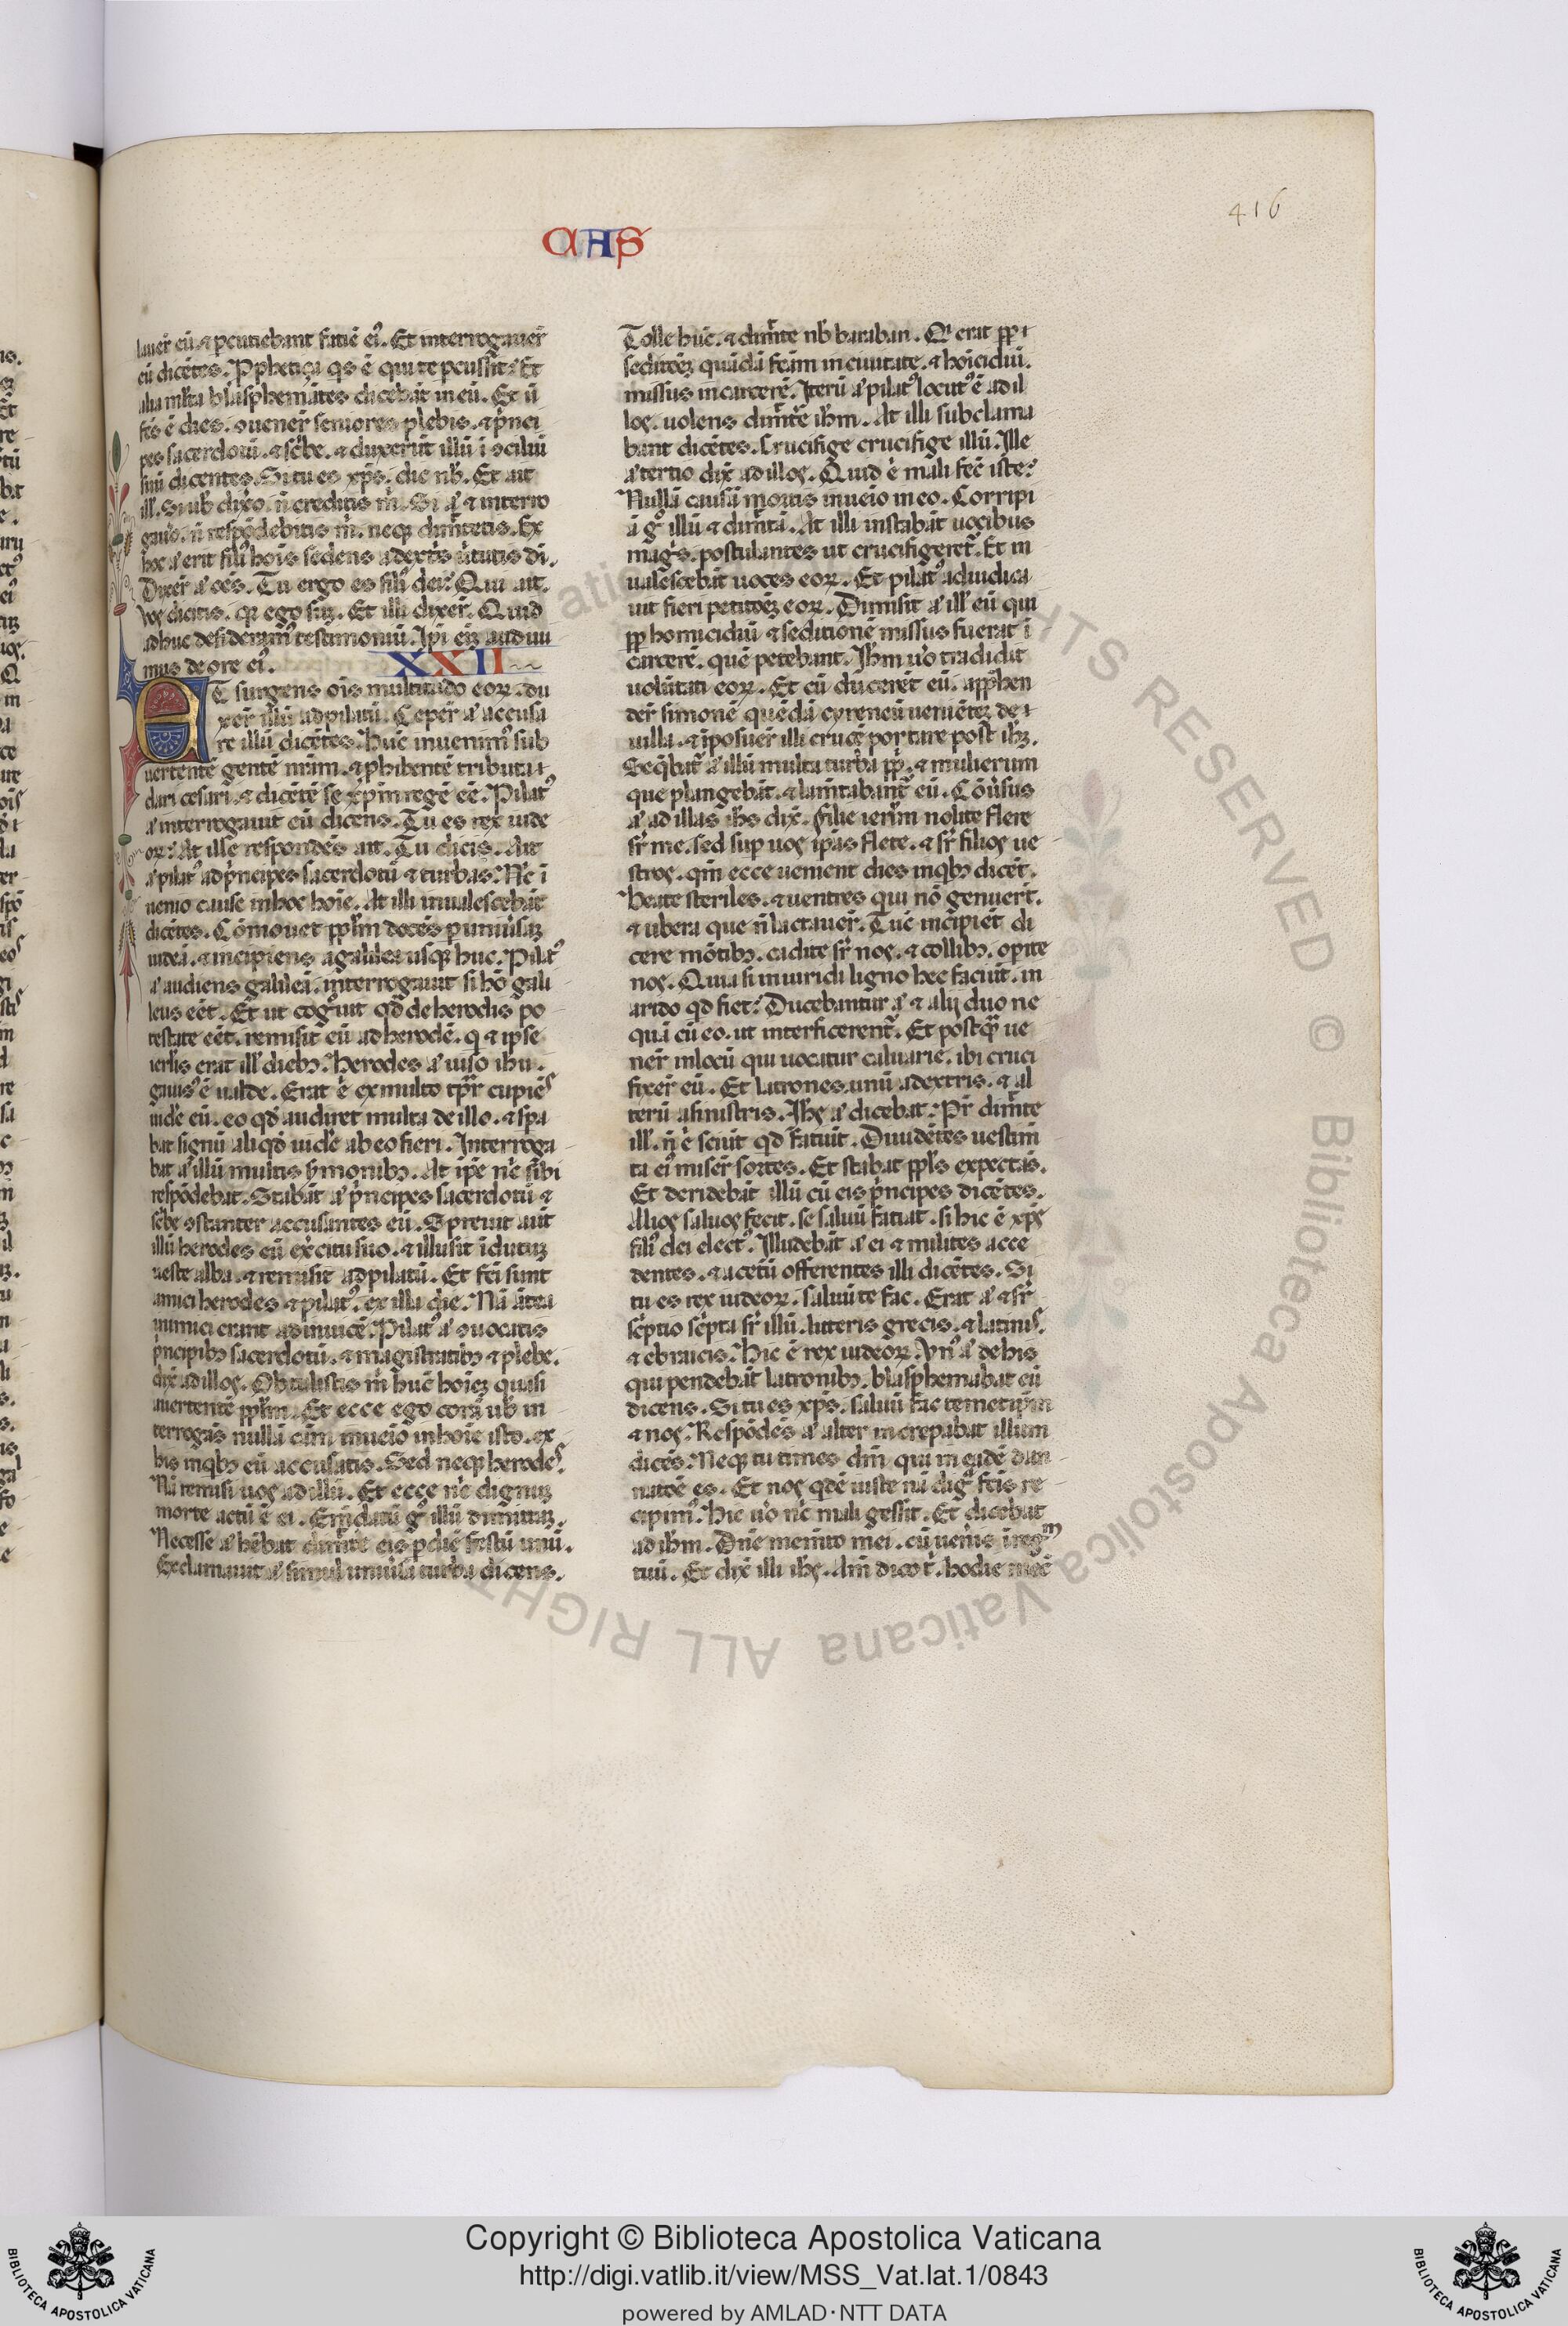 416
CAS
lauer̄ eū. ⁊ ꝑcutiebant faciē ei⁹. Et interrogauer̄
eū dicētes. Ꝓphetiça qͥs ē qui te ꝑcussit? Et
alia ml̄ta blasphemātes dicebāt in eū. Et ū
fcs̄ ē dies. ꝯuener̄ seniores plebis. ⁊ pͥnci
pes sacerdotū. ⁊ scͥbe. ⁊ duxerūt illū ī ꝯciliū
suū dicentes. Si tu es xp̄s. dic nb̄. Et ait
ill̄. Si ub̄ dixͦo. ñ creditis m̄. Si aͣ ⁊ interro
gauͦo. ñ respōdebitis m̄. neqꝫ dimͥtetis. Ex
hoc aͣ erit filiꝰ hoīs sedens adextͥs uͥtutis di.
Dixer̄ aͣ oēs. Tu ergo es filiꝰ dei? Qui ait.
Vos dicitis. qꝛ ego suꝫ. Et illi dixer̄. Quid
adhuc desideramꝰ testimoniū. Ipi eiꝫ audiui
mus de ore eiꝰ.
XXII
ET surgens oīs multitudo eoꝝ. du
xer̄ illū adpilatū. Ceper̄ aͣ accusa
re illū dicētes. Hūc inuenimꝰ sub
uertentē gentē nr̄am. ⁊ ꝓhibentē tributa
dari cesari. ⁊ dicētē se xp̄m regē eē. Pilatꝰ
aͣ interrogauit eū dicens. Tu es rex iude
oꝝ? At ille respondēs ait. Tu dicis. Ait
aͣ pilatꝰ ad pͥncipes sacerdotū ⁊ turbas. Nͥc ī
uenio cause in hoc hoīe. At illi inualescebāt
dicētes. Cōmouet ppl̄m docēs ꝑ uniuͥsaꝫ
iudeā. ⁊ incipiens agalilea usqꝫ huc. Pilatꝰ
aͣ audiens galileā. interrogauit si hō gali
leus eēt. Et ut cognͦuit qd̄ de herodis po
testate eēt. remisit eū ad herodē. q ⁊ ipse
ierl̄is erat ill̄ diebꝫ. Herodes aͣ uiso ihu.
gauisꝰ ē ualde. Erat ē ex multo tp̄r cupiēs
uidͥe eū. eo qd̄ audiret multa de illo. ⁊ spa
bat signū aliqd̄ uidͥe ab eo fieri. Interroga
bat aͣ illū multis sͥmonibꝫ. At ipē nͥc sibi
respōdebat. Stabāt aͣ pͥncipes sacerdotū ⁊
scͥbe ꝯstanter accusantes eū. Spreuit aūt
illū herodes cū exͥcitu suo. ⁊ illusit īdutuꝫ
ueste alba. ⁊ remisit ad pilatū. Et fcī sunt
amici herodes ⁊ pilatꝰ. ex illa die. Nā ātea
inimici erant ad inuicē. Pilatꝰ aͣ ꝯuocatis
pͥncipibꝫ sacerdotū. ⁊ magistratibꝫ ⁊ plebe.
dix̄ ad illos. Obtulistis m̄ hūc hoīeꝫ quasi
auertentē ppl̄m. Et ecce ego corā ub̄ in
terrogās nullā cām inueīo in hoīe isto. ex
his in qͥbꝫ eū accusatis. Sed neqꝫ herodes.
Nā remisi uos ad illū. Et ecce nͥc dignuꝫ
morte actū ē ei. Emͥdatū gͦ illū dimittaꝫ.
Necesse aͣ hēbat dimͥtͥe eis ꝑ diē festū unū.
Exclamauit aͣ simul uniuͥsa turba dicens.
Tolle hūc. ⁊ dimͥte nb̄ baraban. Qͥ erat ꝓp
seditōeꝫ quādā fcām in ciuitate. ⁊ hoīcidiū.
missus in carcerē. Iterū aͣ pilatꝰ locutꝰ ē ad il
los. uolens dimͥtͥe ihm̄. At illi subclama
bant dicētes. Crucifige crucifige illū. Ille
aͣ tertio dix̄ ad illos. Quid ē mali fēc iste?
Nullā causā mortis inueīo in eo. Corripi
ā gͦ illū ⁊ dimͥtā. At illi instabāt uocibus
magͥs. postulantes ut crucifigeret̄. Et in
ualescebāt uoces eoꝝ. Et pilatꝰ adiudica
uit fieri petitōeꝫ eoꝝ. Dimisit aͣ ill̄ eū qui
ꝓp homicidiū ⁊ seditionē missus fuerat ī
carcerē. quē petebant. Ihm̄ uͦo tradidit
uolūtati eoꝝ. Et cū ducerēt eū. app̄hen
der̄ simonē quēdā cyreneū uenientēꝫ de
uilla. ⁊ īposuer̄ illi crucē portare post ihꝫ.
Seqͥbat̄ aͣ illū multa turba ppͥ. ⁊ mulierum
que plangebāt. ⁊ lamͥtabant̄ eū. Cōuͥsus
aͣ ad illas ihs̄ dix̄. Filie ierl̄m nolite flere
sr̄ me. sed suꝑ uos ipās flete. ⁊ sr̄ filios ue
stros. qm̄ ecce uenient dies in qͥbꝫ dicēt.
Beate steriles. ⁊ uentres qui nō genuerūt.
⁊ ubera que ñ lactauer̄. Tūc incipiēt di
cere mōtibꝫ. cadite sr̄ nos. ⁊ collibꝫ. opͥte
nos. Quia si in uiridi ligno hec faciūt. in
arido qd̄ fiet? Ducebantur aͣ ⁊ alij duo ne
quā cū eo. ut interficerent̄. Et postqͣ ue
ner̄ in locū qui uocatur caluarie. ibi cruci
fixer̄ eū. Et latrones. unū adextris. ⁊ al
terū asinistris. Ihs̄ aͣ dicebat. Pr̄ dimͥte
ill̄. ñ ē sciūt qd̄ faciūt. Diuidētes uestim
ta eiꝰ miser̄ sortes. Et stabat ppl̄s expectās.
Et deridebāt illū cū eis pͥncipes dicētes.
Alios saluos fecit. se saluū faciat. si hic ē xp̄s
filiꝰ dei electꝰ. Illudebāt aͣ ei ⁊ milites acce
dentes. ⁊ acetū offerentes illi dicētes. Si
tu es rex iudeoꝝ. saluū te fac. Erat aͣ ⁊ sr̄
scͥptio scͥpta sr̄ illū. litteris grecis. ⁊ latinis.
⁊ ebraicis. Hic ē rex iudeoꝝ. Vnꝰ aͣ de his
qui pendebāt latronibꝫ. blasphemabat eū
dicens. Si tu es xp̄s. saluū fac temetip̄m
⁊ nos. Respōdēs aͣ alter increpabat illum
dicēs. Neqꝫ tu times dm̄ qui in eadē dan
natōe es. Et nos qͥdē iuste nā digͣ fcīs re
cipimꝰ. Hic uͦo nͥc mali gessit. Et dicebat
ad ihm̄. Dn̄e memͥto mei. cū uenͥis ī regͫ
tuū. Et dix̄ illi ihs̄. Am̄ dico t̄. hodie mecū
© Biblioteca Apostolica Vaticana ALL RIGHTS RESERVED
Copyright © Biblioteca Apostolica Vaticana
http://digi.vatlib.it/view/MSS_Vat.lat.1/0843
powered by AMLAD·NTT DATA
BIBLIOTECA APOSTOLICA VATICANA
BIBLIOTECA APOSTOLICA VATICANA